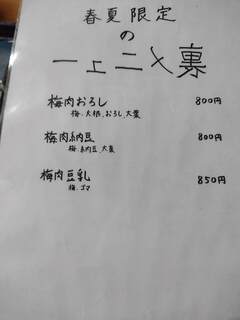 春夏限定
の
ーュニメ裏
梅肉おろし 800円
梅、大根、おろし、大葉
梅肉納豆 800円
梅、納豆、大葉
梅肉豆乳 850円
梅、ゴマ